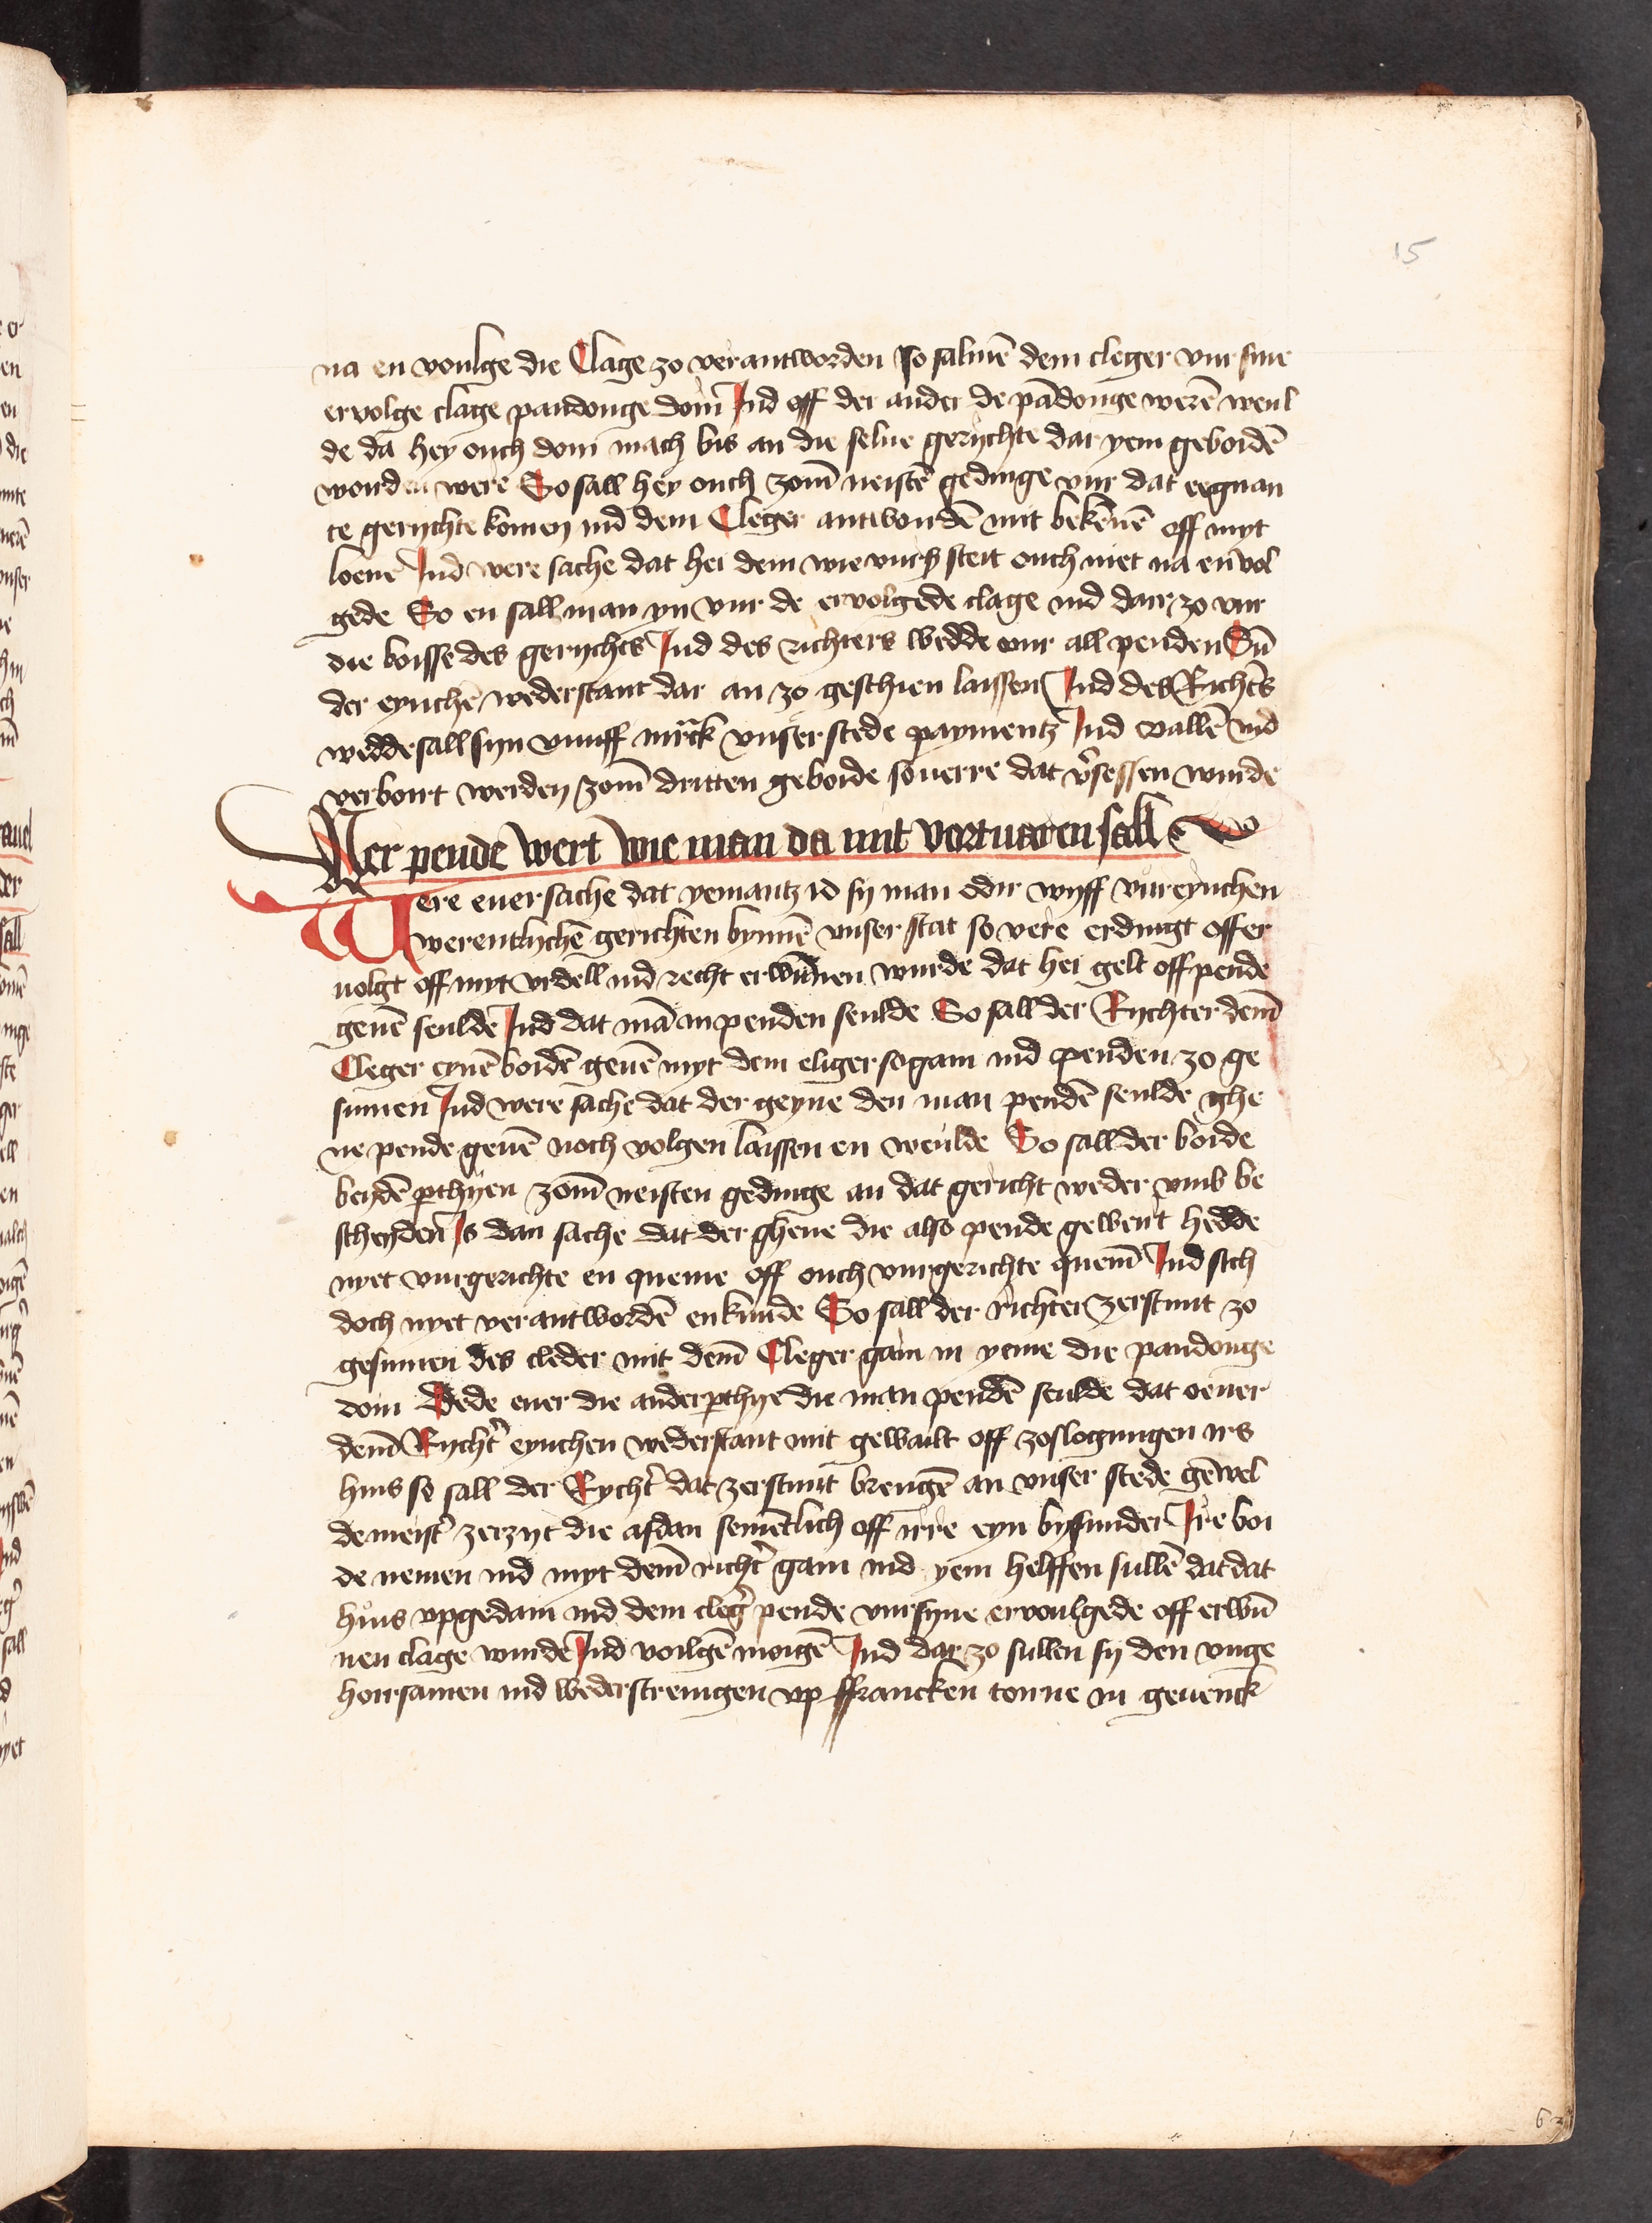 15
na en voulge die Clage zo verantworden so salmē dem cleger vur sine
ervolge clage pandonge doin Ind off der ander de pādonge werē weul
de da hey ouch doin mach bis an die selue gerychte dar yem gebordē
worden were So sall hey ouch zom̄ neistē gedinge vur dat eegnan
te gerychte komen ind dem Cleger antwordē mit bekēnē off myt
loenē Ind were sache dat hei dem wie vurß steit ouch niet na en vol
gede So en sall man yn vur de ervolgede clage ind darzo vur
die boisse des gerychts Ind des richters wedde vur all penden Sū
der eynchē wederstant dar an zo geschien laissen Ind des Richtēs
wedde sall syn vunff mrck vnser stede paymentz Ind vallē ind
verbourt werden zom̄ dritten geboide souerre dat v̄sessen wurde
Wer pende wert wie man da mit vortuaren sall
Were euer sache dat yemantz id sy man odir wyff vur eynchen
werentlychē gerichten bynnē vnser stat so vere erdingt off er
uolgt off myt vrdell ind recht erwūnen wurde dat hei gelt off pende
geuē seulde Ind dat mā in penden seulde So sall der Rychter dem̄
Cleger eynē boidē geuē myt dem eliger so gain ind penden zo ge
sinnen Ind were sache dat der geyne den man pendē seulde ghe
ne pende geuē noch volgen laissen en weulde So sall der boide
beydē p̄thyen zom̄ neisten gedinge an dat gericht weder vmb be
scheyden Is dan sache dat der ghene die also pende gewert hedde
nyet vurgerichte en queme off ouch vurgerichte quem̄ Ind sich
doch nyet verantwordē enkunde So sall der richter zerstunt zo
gesinnen des cleder mit dem̄ Cleger gain in yeme die pandonge
doin Dede euer die ander p̄thye die man pendē seulde dat oeuer
dem̄ Rycht̄ eynchen wederstant mit gewailt off zoslogungen irs
huis so sall der Rycht̄ dat zerstunt brengē an vnser stede gēwel
demeist̄ zerzyt die asdan semētlich off irre eyn bysunder Ire boi
de nemen ind myt dem̄ richt̄ gain ind yem helffen sullē dat dat
huis vpgedain ind dem cleḡ pende vur syne ervoulgede off erwū
nen clage wurde Ind voilgē moigē Ind darzo sullen sy den vnge
hoirsamen ind wederstrengen vp ffrancken tonne in geuenck
63